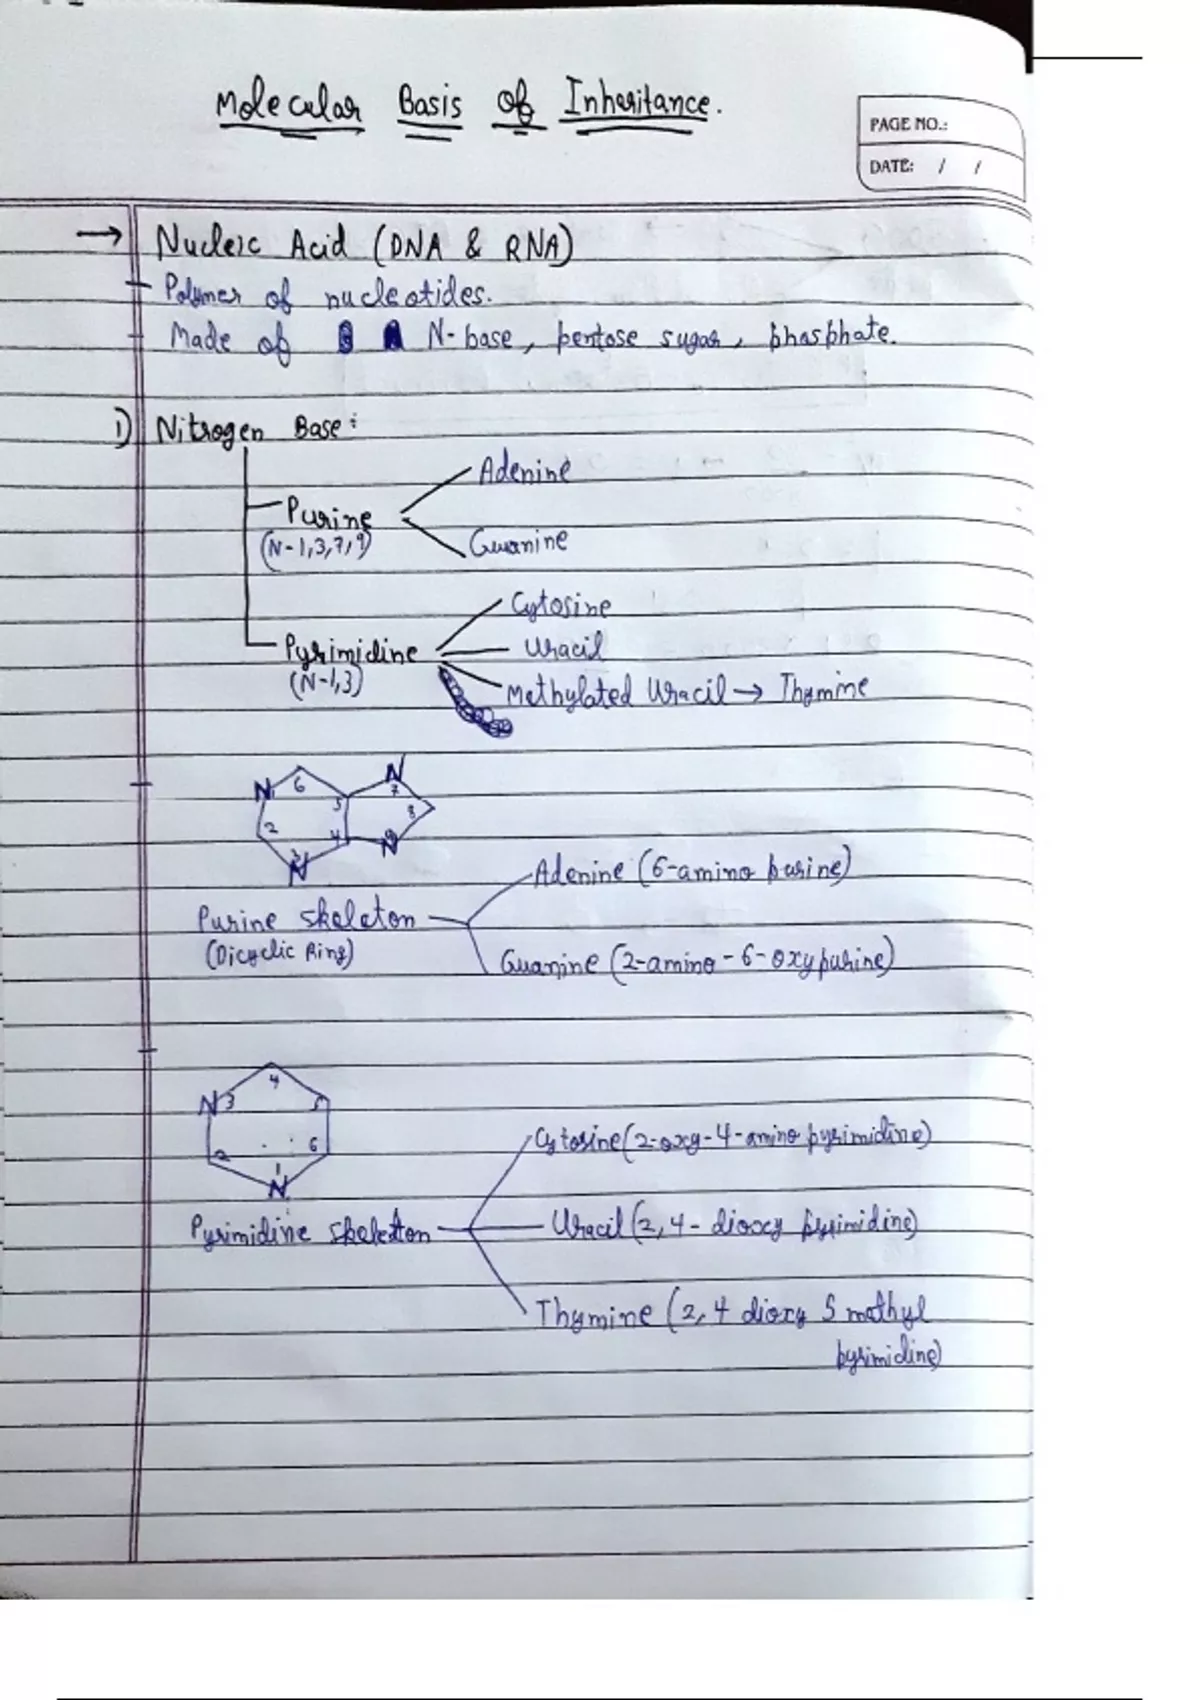 Molecular Basis of Inheritance.
PAGE NO.:
DATE: / /
→ Nucleic Acid (DNA & RNA)
- Polymer of nucleotides.
- Made of N-base, pentose sugar, phosphate.
1) Nitrogen Base:
Adenine
Purine
(N-1,3,7,9)
Guanine
Cytosine
Uracil
Pyrimidine
(N-1,3)
Methylated Uracil → Thymine
N 7
N 1 6
5
8
2 4
N 9
N 3
Adenine (6-amino purine)
Purine skeleton
(Dicyclic Ring)
Guanine (2-amino-6-oxypurine)
4
N 3 5
2 6
1
N
Cytosine (2-oxy-4-amino pyrimidine)
Pyrimidine skeleton
Uracil (2,4-dioxy pyrimidine)
Thymine (2,4 dioxy 5 methyl
pyrimidine)